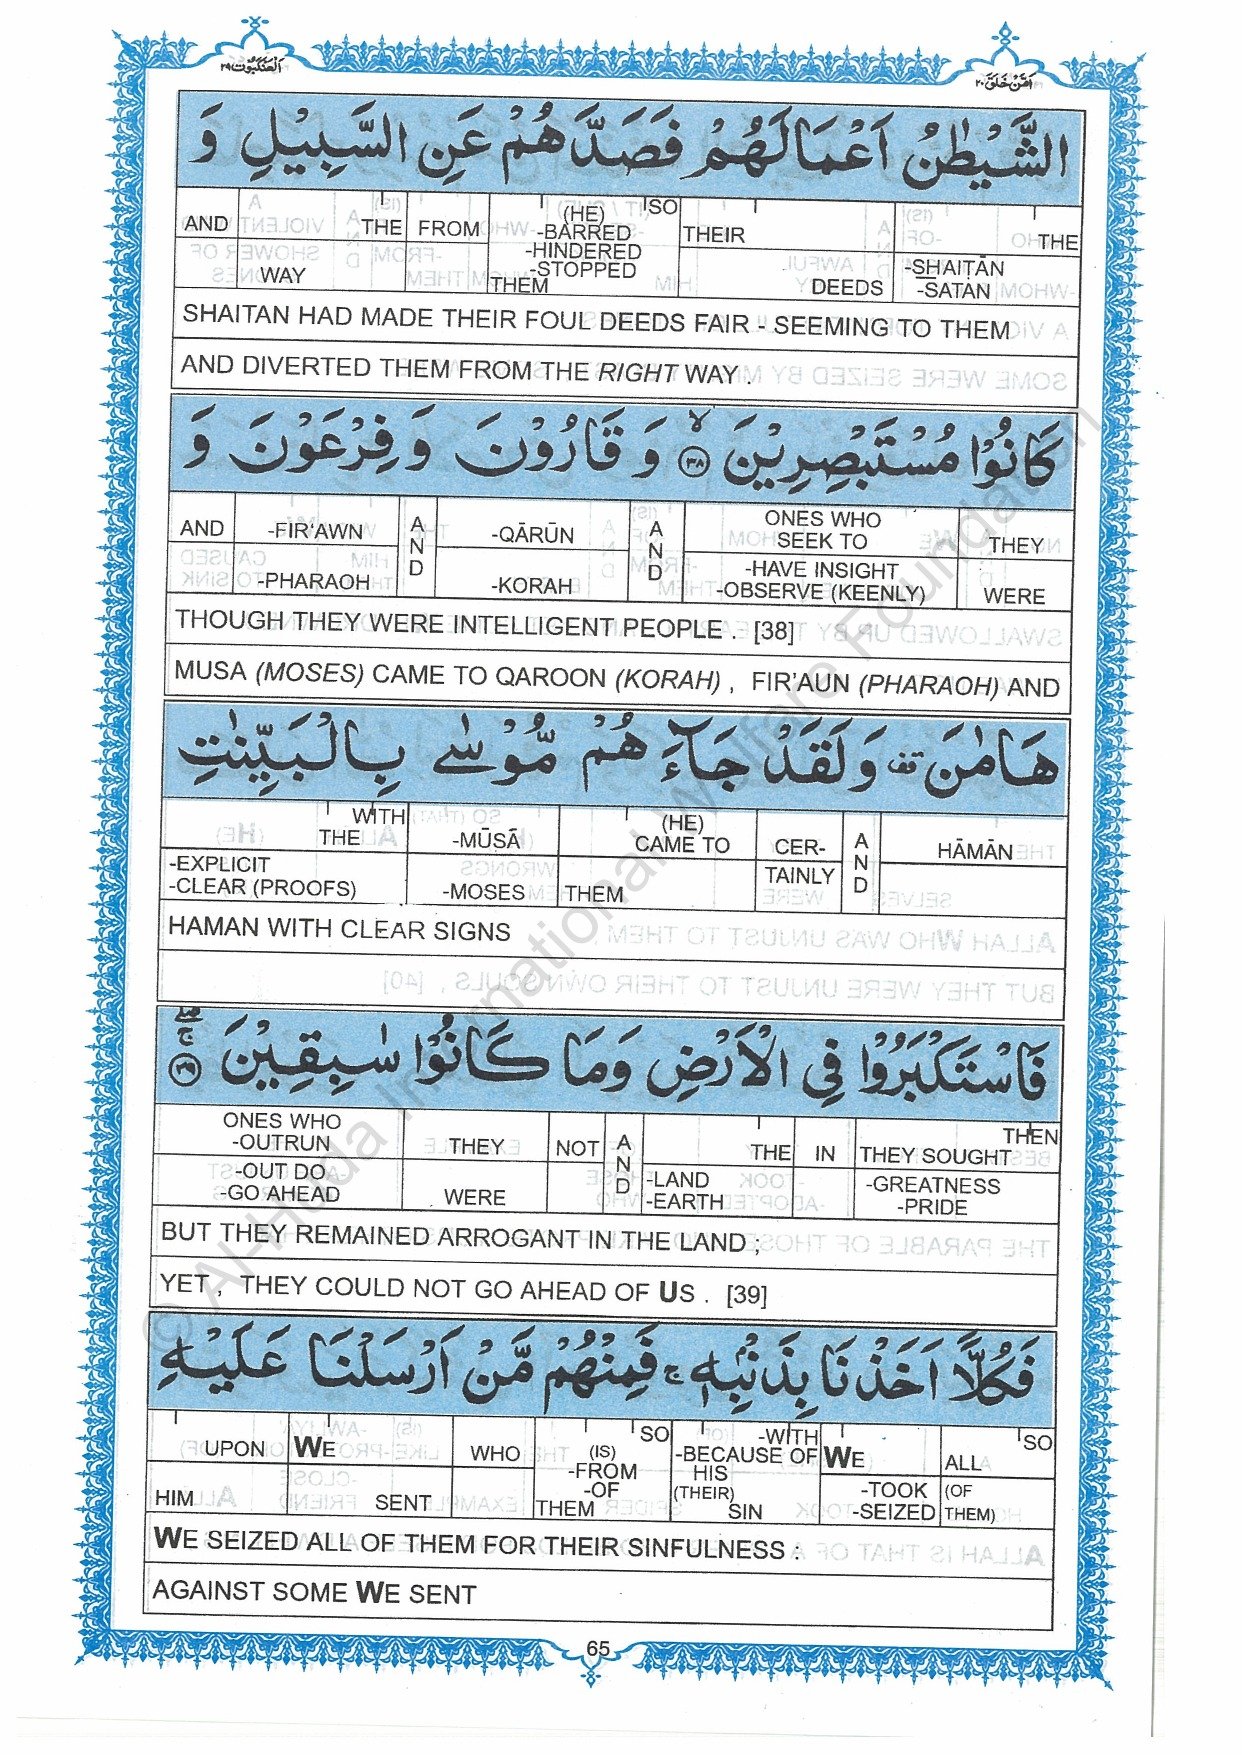 العنكبوت ٢٩
امّن خلق ٢٠
الشَّيْطٰنُ اَعْمَالَهُمْ فَصَدَّهُمْ عَنِ السَّبِيْلِ وَ
AND THE FROM (HE) SO THEIR THE
-BARRED
-HINDERED
WAY -STOPPED DEEDS -SHAITĀN
THEM -SATAN
SHAITAN HAD MADE THEIR FOUL DEEDS FAIR - SEEMING TO THEM
AND DIVERTED THEM FROM THE RIGHT WAY .
كَانُوْا مُسْتَبْصِرِيْنَ ﴿٣٨﴾ۙ وَ قَارُوْنَ وَ فِرْعَوْنَ وَ
AND -FIR‘AWN AND -QĀRŪN AND ONES WHO THEY
SEEK TO
-PHARAOH -KORAH -HAVE INSIGHT WERE
-OBSERVE (KEENLY)
THOUGH THEY WERE INTELLIGENT PEOPLE . [38]
MUSA (MOSES) CAME TO QAROON (KORAH) , FIR'AUN (PHARAOH) AND
هَامٰنَ قف وَلَقَدْ جَآءَ هُمْ مُّوْسٰى بِالْبَيِّنٰتِ
WITH THE -MŪSĀ (HE) CER- AND HĀMĀN
CAME TO
-EXPLICIT -MOSES THEM TAINLY
-CLEAR (PROOFS)
HAMAN WITH CLEAR SIGNS
فَاسْتَكْبَرُوْا فِى الْاَرْضِ وَمَا كَانُوْا سٰبِقِيْنَ ﴿٣٩﴾
ONES WHO THEY NOT AND THE IN THEN
-OUTRUN THEY SOUGHT
-OUT DO WERE -LAND -GREATNESS
-GO AHEAD -EARTH -PRIDE
BUT THEY REMAINED ARROGANT IN THE LAND ;
YET , THEY COULD NOT GO AHEAD OF US . [39]
فَكُلًّا اَخَذْنَا بِذَنْۢبِهٖ ج فَمِنْهُمْ مَّنْ اَرْسَلْنَا عَلَيْهِ
UPON WE WHO SO -WITH WE SO
(IS) -BECAUSE OF ALL
-FROM HIS
HIM SENT -OF (THEIR) -TOOK (OF
THEM SIN -SEIZED THEM)
WE SEIZED ALL OF THEM FOR THEIR SINFULNESS :
AGAINST SOME WE SENT
65
© Al-Huda International Welfare Foundation